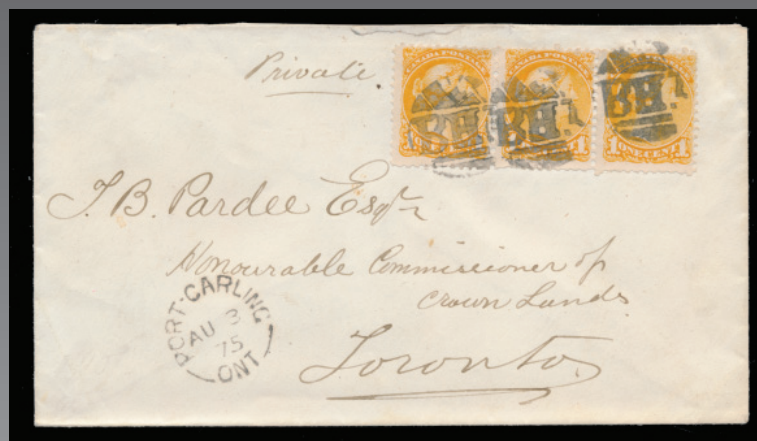 Private
CANADA POSTAGE CANADA POSTAGE CANADA POSTAGE
B.H.
B.H.
B.H.
1 ONE CENT 1
T. B. Pardee Esqr
Honourable Commissioner of
Crown Lands
Toronto
PORT-CARLING
AU 3
75
ONT